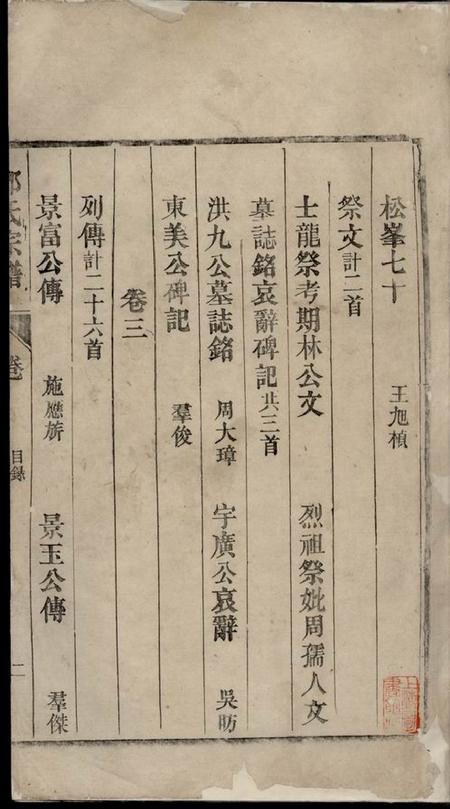 松峯七十 王旭楨
祭文計二首
士龍祭考期林公文 烈祖祭妣周孺人文
墓誌銘哀辭碑記共三首
洪九公墓誌銘 周大璋 宇廣公哀辭 吳昉
東美公碑記 羣俊
卷三
列傳計二十六首
景富公傳 施應旂 景玉公傳 羣傑
氏宗譜 卷 目錄 二